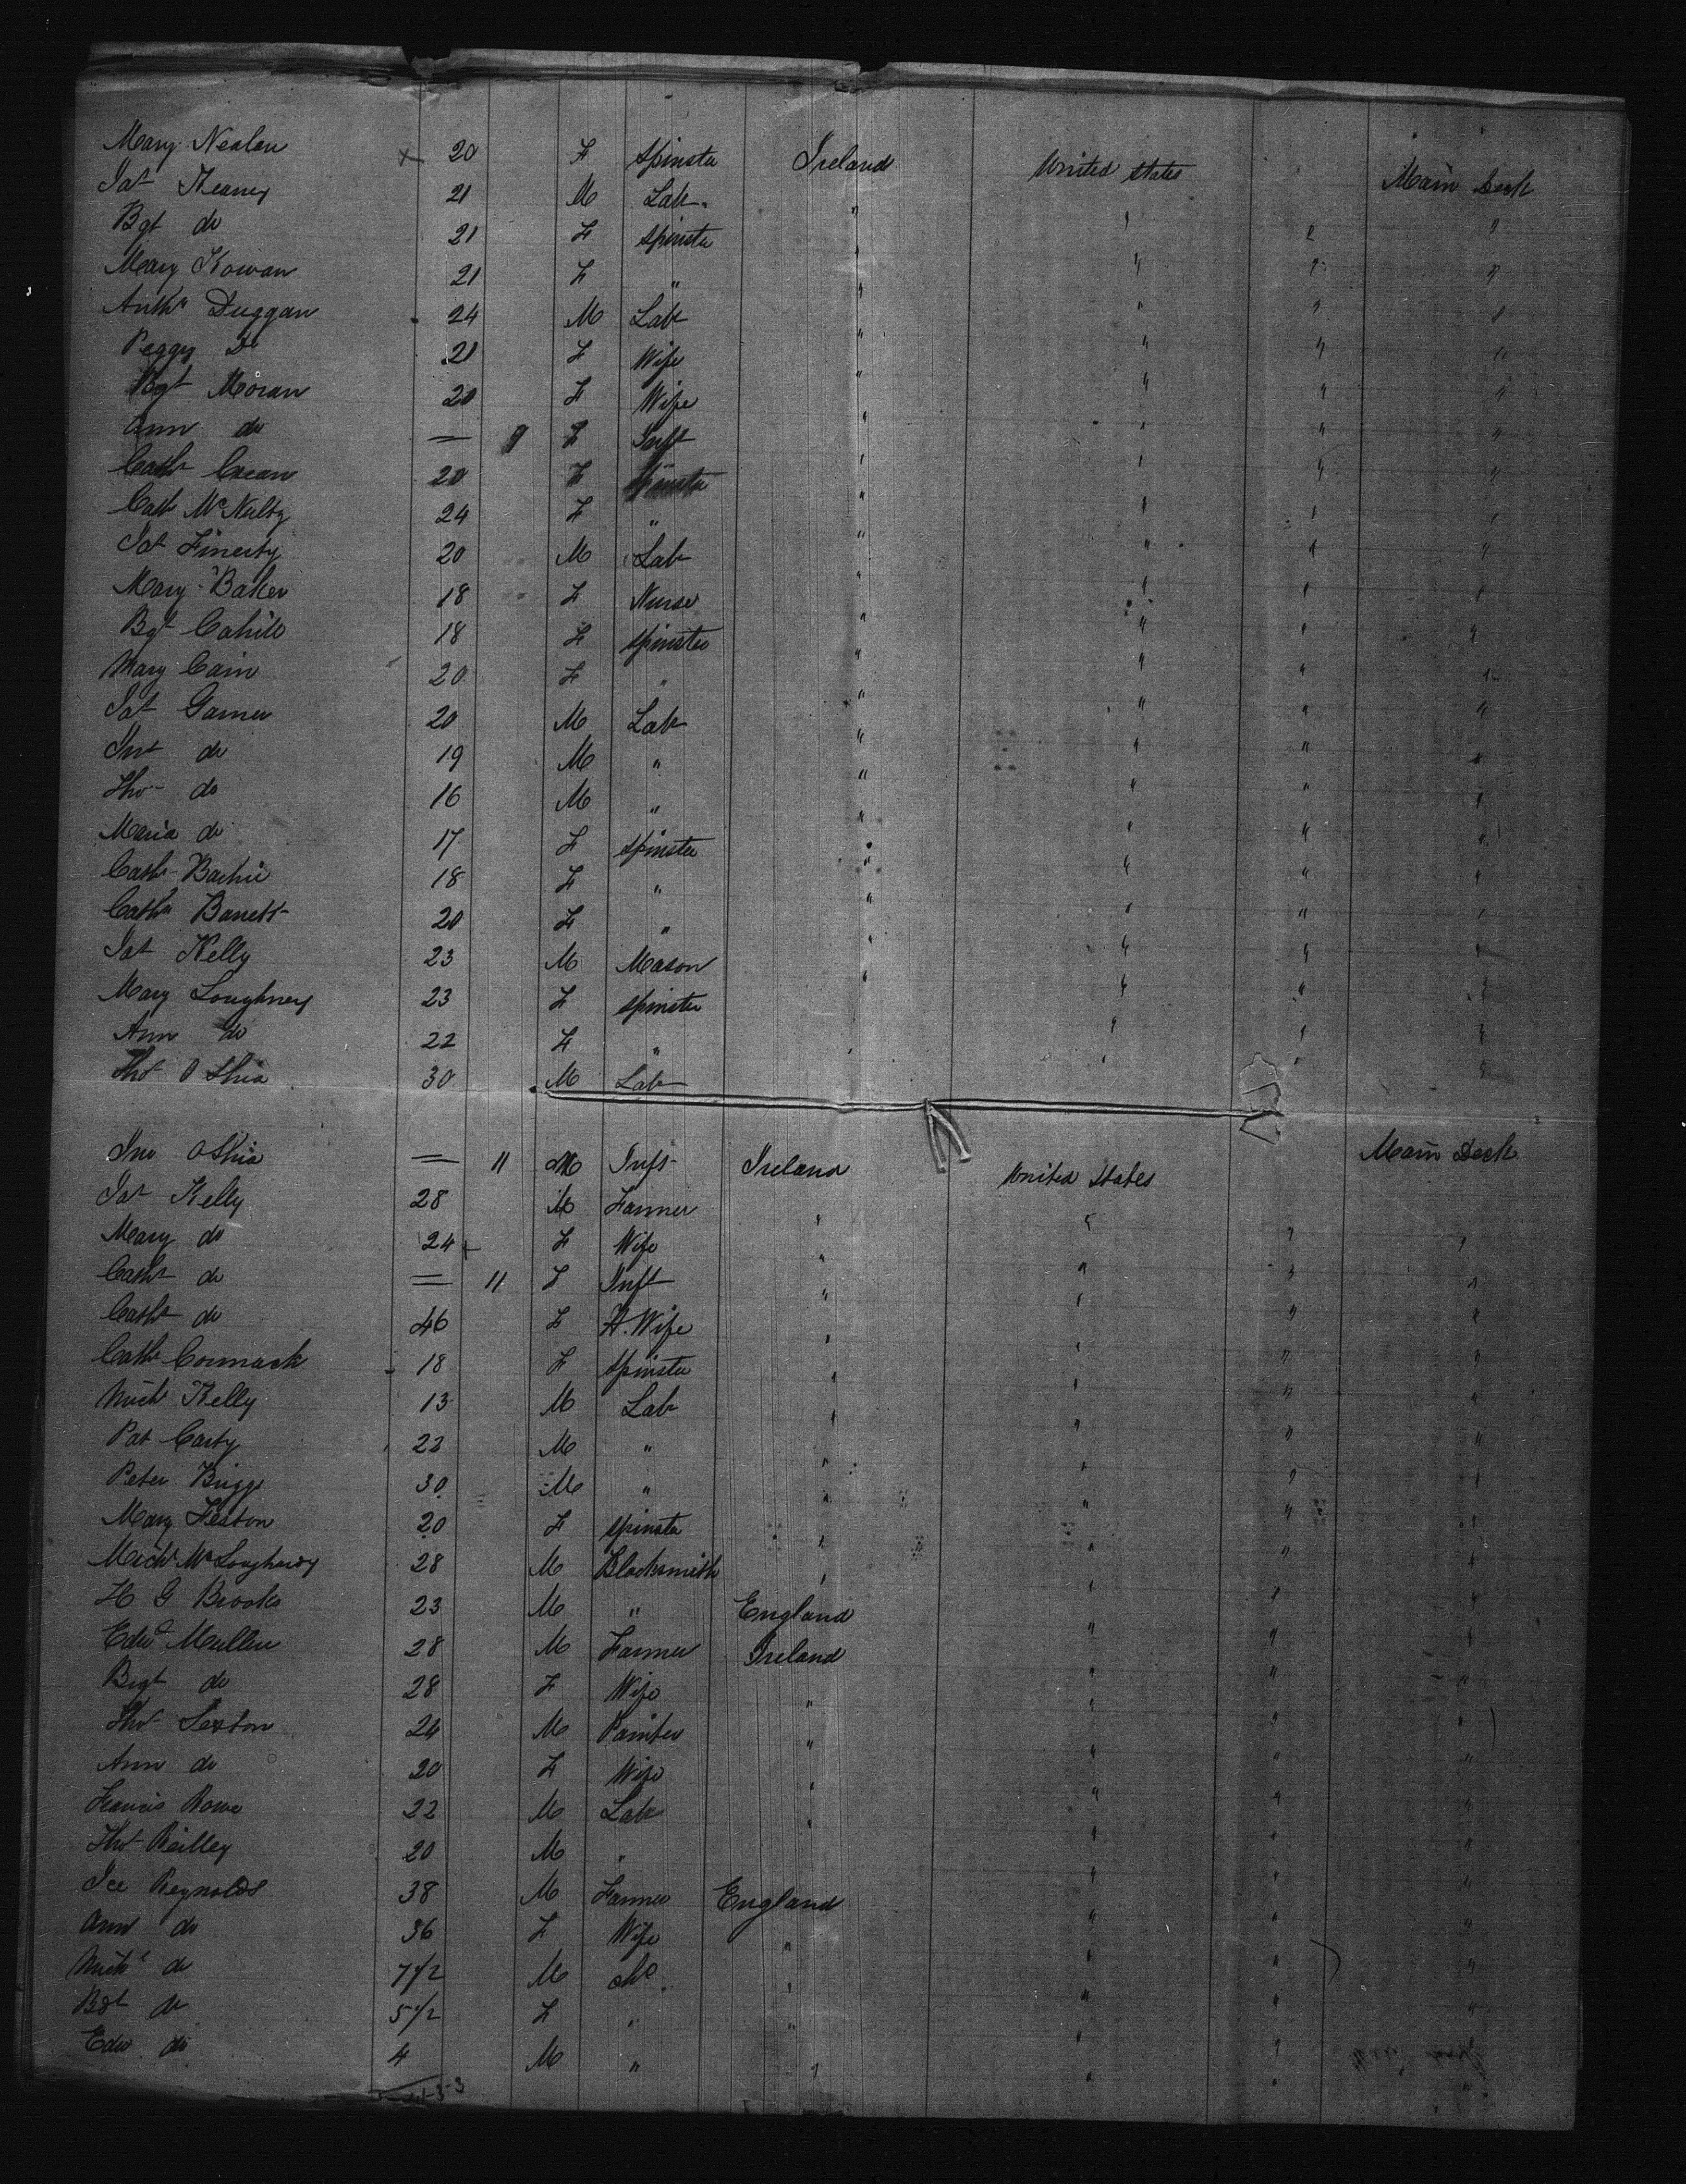 Mary Nealon 20 F Spinster Ireland United States Main Deck
Pat Keaney 21 M Lab. " " "
Bgt do 21 F Spinster " " " "
Mary Kowan 21 F " " " " "
Anth Duggan 24 M Lab " " " "
Peggy Do 21 F Wife " " " "
Bgt Moran 20 F Wife " " " "
Ann do — 9 F Inft " " " "
Cath Crean 20 F Spinster " " " "
Cath McNulty 24 F " " " " "
Pat Finerty 20 M Lab " " " "
Mary Baker 18 F Nurse " " " "
Bgt Cahill 18 F Spinster " " " "
Mary Cain 20 F " " " " "
Pat Garner 20 M Lab " " " "
Jno do 19 M " " " " "
Tho do 16 M " " " " "
Maria do 17 F Spinster " " " "
Cath 18 F " " " " "
Cath Barrett 20 F " " " " "
Pat Kelly 23 M Mason " " " "
Mary Loughney 23 F Spinster " " " "
Ann do 22 F " " " "
Tho O Shia 30 M Lab " " "
Jno O Shia — 11 M Inft Ireland United States Main Deck
Pat Kelly 28 M Farmer " "
Mary do 24 F Wife " " " "
Cath do — 11 F Inft " " " "
Cath do 46 F H. Wife " " " "
Cath Cormack 18 F Spinster " " " "
Mich Kelly 13 M Lab " " " "
Pat Carty 22 M " " " " "
Peter Briggs 30 M " " " " "
Mary Heston 20 F Spinster " " " "
Mich McLoughney 28 M Blacksmith " " " "
H G Brooks 23 M " England " " "
Edwd Mullen 28 M Farmer Ireland " " "
Brgt do 28 F Wife " " " "
Tho Sexton 24 M Painter " " " "
Ann do 20 F Wife " " " "
Francis Rowe 22 M Lab " " " "
Tho Reilley 20 M " " " "
Reynolds 38 M Farmer England " " "
Ann do 36 F Wife " " " "
Mich do 7 1/2 M " " " "
Bgt do 5 1/2 F " " " " "
Edw do 4 M " " " " "